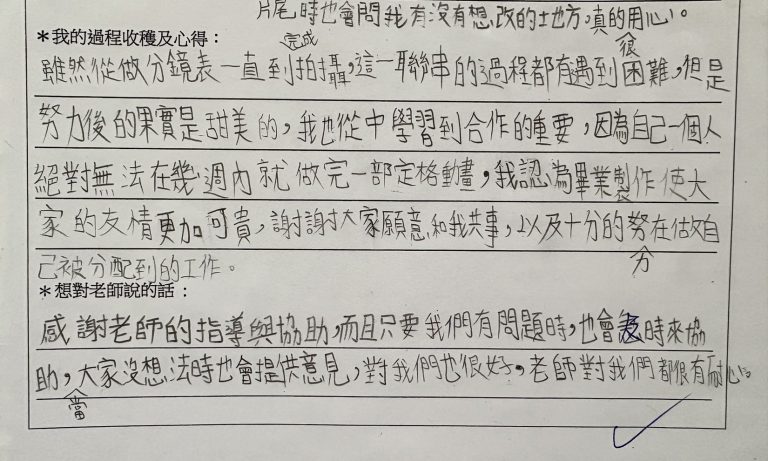 片尾時也會問我有沒有想改的地方,真的用心。
*我的過程收穫及心得:
雖然從做分鏡表一直到完成拍攝,這一聯串的過程都有遇到很困難,但是
努力後的果實是甜美的,我也從中學習到合作的重要,因為自己一個人
絕對無法在幾週內就做完一部定格動畫,我認為畢業製作使大
家的友情更加可貴,謝謝大家願意和我共事,以及十分的努力在做自
己被分配到的工作。
*想對老師說的話:
感謝老師的指導與協助,而且只要我們有問題時,也會及時來協
助,當大家沒想法時也會提供意見,對我們也很好,老師對我們都很有耐心。